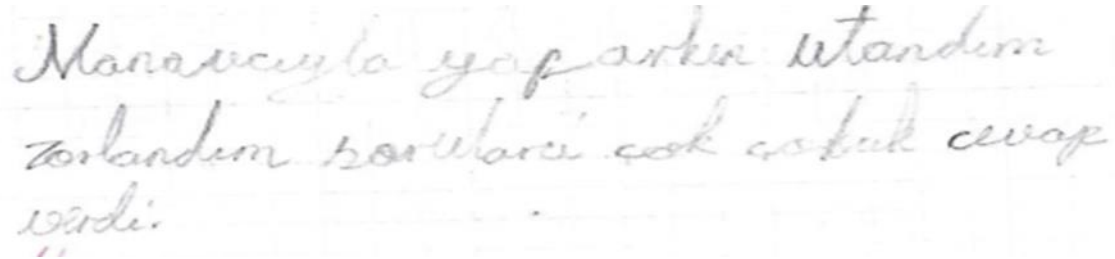 Manavcıyla yaparken utandım
zorlandım soruları çok çabuk cevap
verdi.